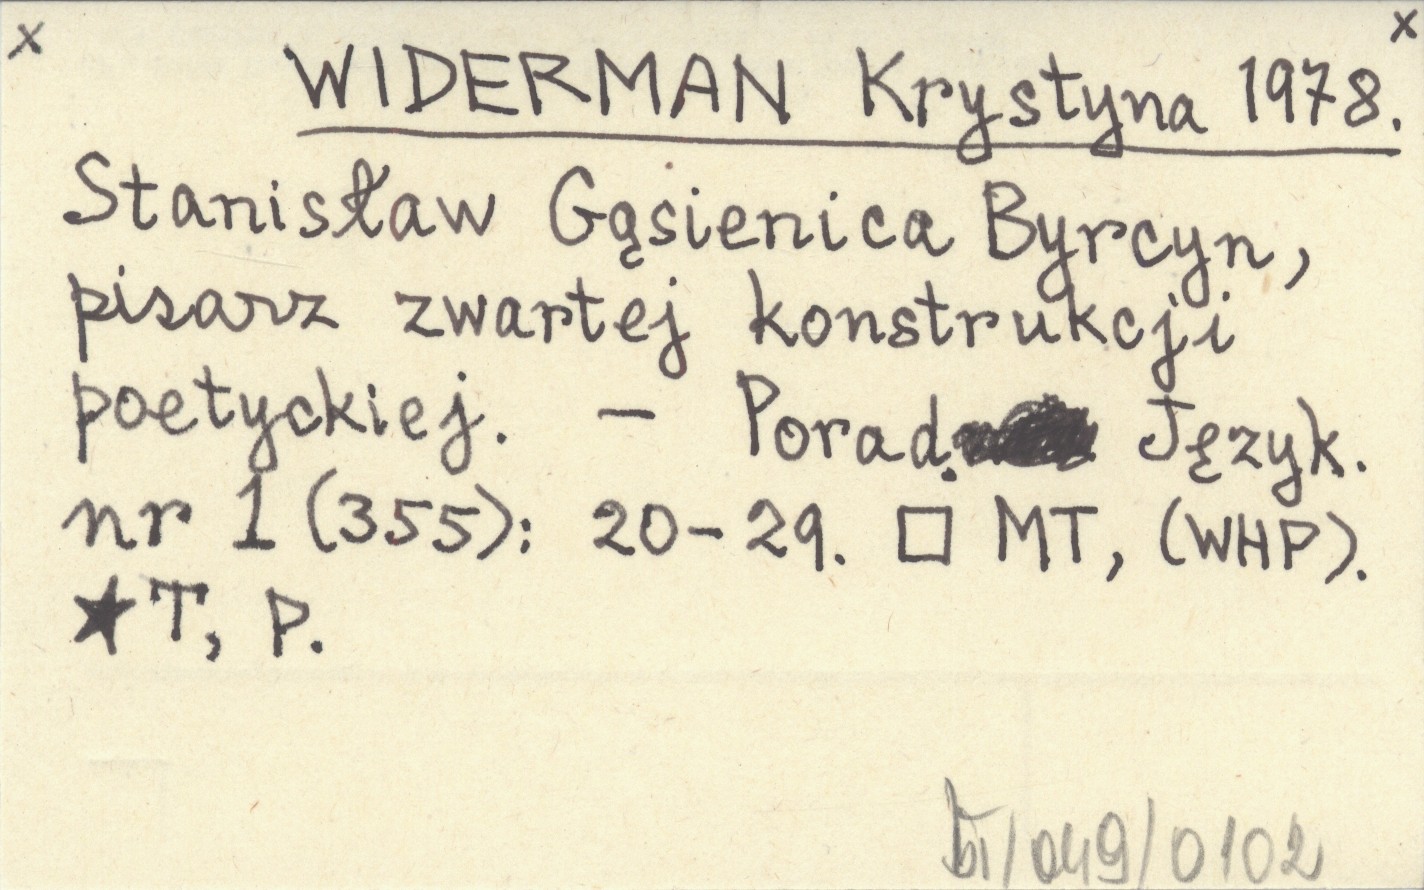 x x
WIDERMAN Krystyna 1978.
Stanisław Gąsienica Byrcyn,
pisarz zwartej konstrukcji
poetyckiej. – Porad. Język.
nr 1 (355): 20-29. □ MT, (WHP).
★T, P.
/049/0102